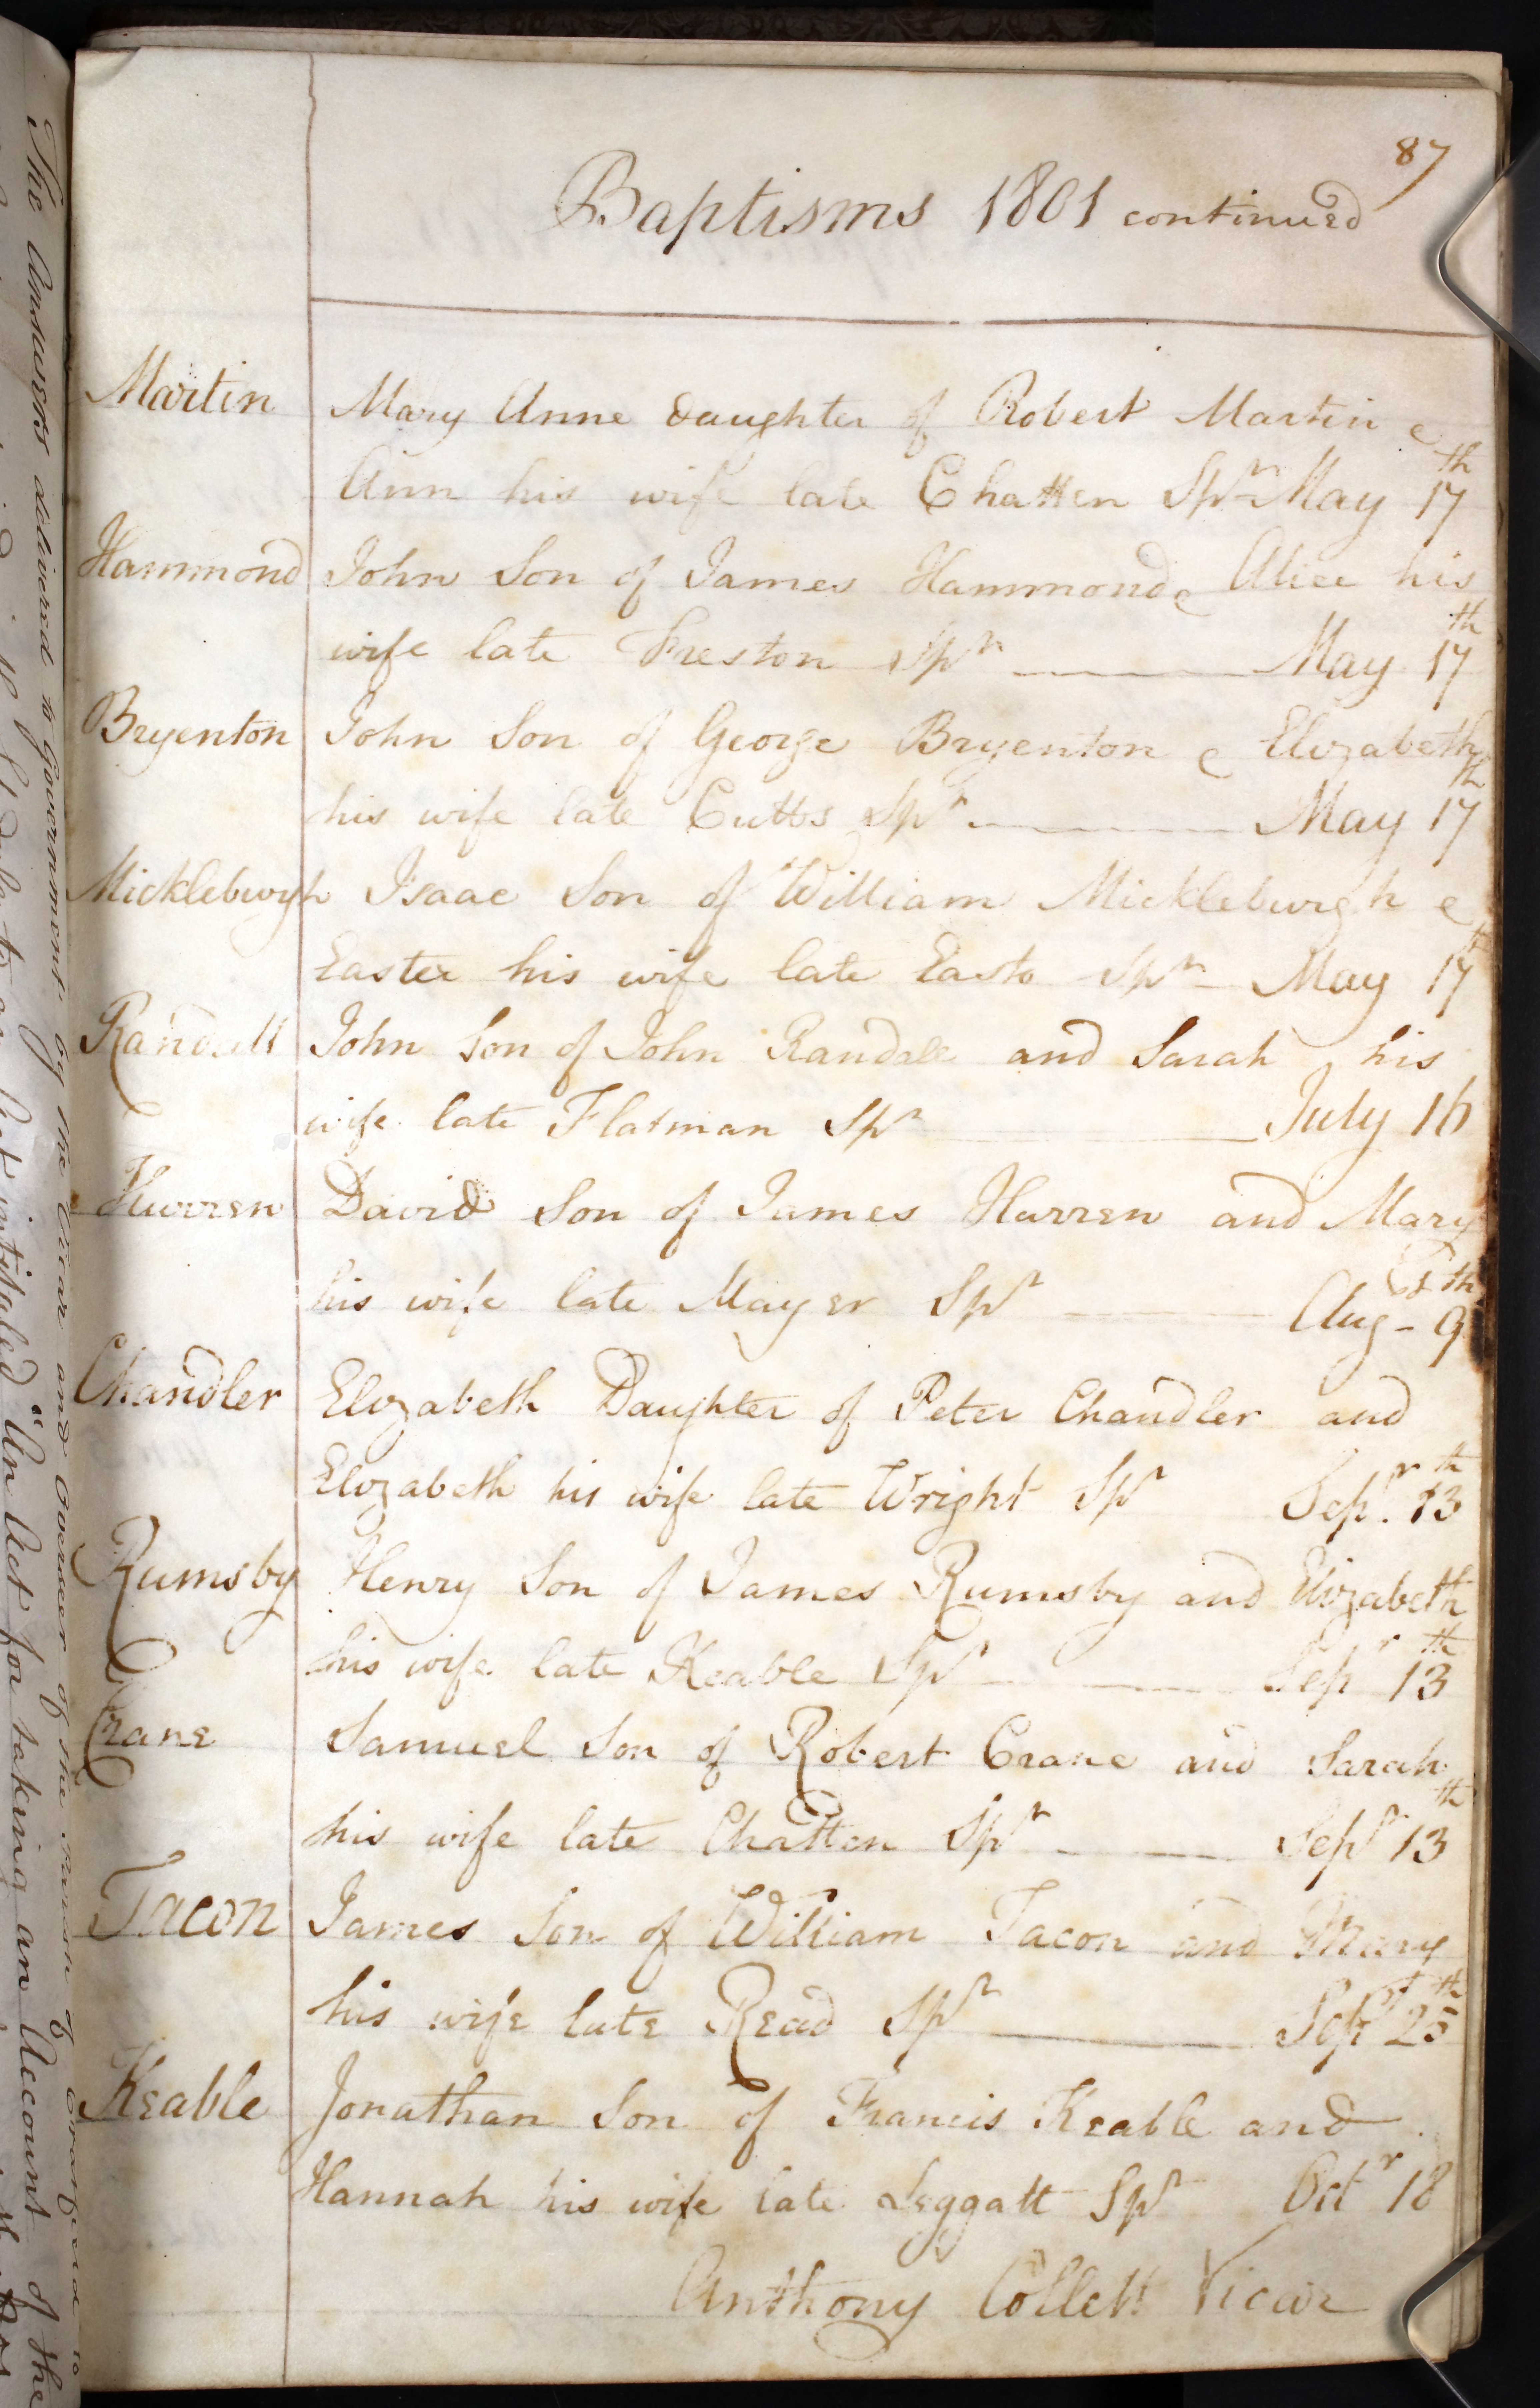 87
Baptisms 1801 continued
Martin Mary Anne daughter of Robert Martin &
Ann his wife late Chatten Spr May 17th
Hammond John Son of James Hammond & Alice his
wife late Freston Spr May 17th
Bryenton John Son of George Bryenton & Elizabeth
his wife late Cutts Spr May 17th
Mickleburgh Isaac Son of William Mickleburgh &
Easter his wife late Easto Spr May 17th
Randall John Son of John Randall and Sarah his
wife late Flatman Spr July 16
Hurren David Son of James Hurren and Mary
his wife late Mayer Spr Aug- 9th
Chandler Elizabeth Daughter of Peter Chandler and
Elizabeth his wife late Wright Spr Sepr. 13th
Rumsby Henry Son of James Rumsby and Elizabeth
his wife late Keable Spr Sepr 13th
Crane Samuel Son of Robert Crane and Sarah
his wife late Chatten Spr Sepr 13th
Tacon James Son of William Tacon and Mary
his wife late Read Spr Sept 25th
Keable Jonathan Son of Francis Keable and
Hannah his wife late Leggatt Spr Octr 18
Anthony Collett Vicar
The Answers delivered to Government by the Vicar and Overseer of the Parish of
intitaled "An Act for taking an Account of the